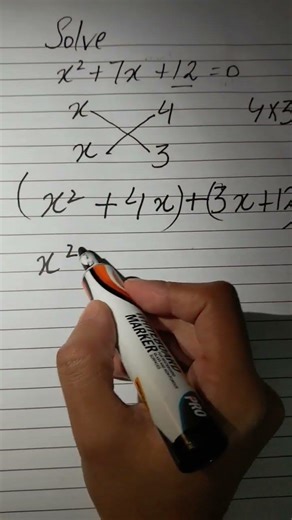 Solve
x² + 7x + 12 = 0
x 4 4x3
x 3
(x² + 4x) + (3x + 12
x²
MARKER
PRO